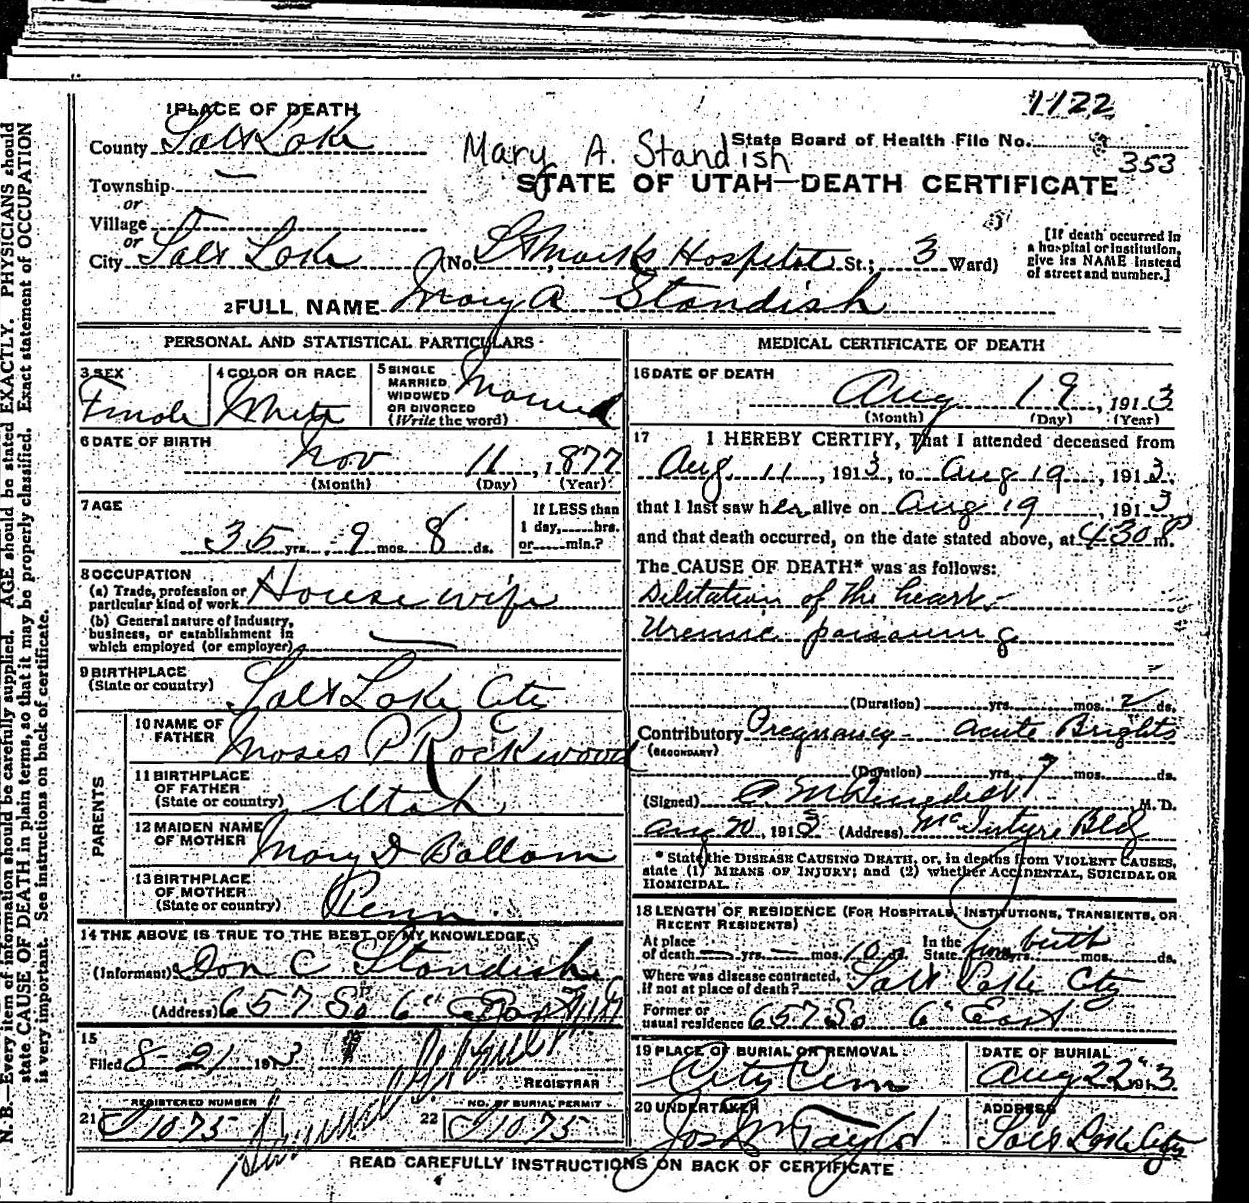 1122
1 PLACE OF DEATH
County Salt Lake
State Board of Health File No. 353
Mary A. Standish
Township
STATE OF UTAH—DEATH CERTIFICATE
or
Village
or
City Salt Lake (No. St Marks Hospital St.; 3 Ward)
[If death occurred in a hospital or institution, give its NAME instead of street and number.]
2 FULL NAME Mary A Standish
PERSONAL AND STATISTICAL PARTICULARS
3 SEX
Female
4 COLOR OR RACE
White
5 SINGLE MARRIED WIDOWED OR DIVORCED (Write the word)
Married
6 DATE OF BIRTH
Nov 11, 1877
(Month) (Day) (Year)
7 AGE
35 yrs. 9 mos. 8 ds.
If LESS than 1 day, hrs. or min.?
8 OCCUPATION
(a) Trade, profession or particular kind of work Housewife
(b) General nature of industry, business, or establishment in which employed (or employer)
9 BIRTHPLACE
(State or country) Salt Lake City
PARENTS
10 NAME OF FATHER Moses P Rockwood
11 BIRTHPLACE OF FATHER (State or country) Utah
12 MAIDEN NAME OF MOTHER Mary D Ballam
13 BIRTHPLACE OF MOTHER (State or country) Penn
14 THE ABOVE IS TRUE TO THE BEST OF MY KNOWLEDGE
(Informant) Don C Standish
(Address) 657 So 6" East
15
Filed 8-21 1913
REGISTRAR
REGISTERED NUMBER
21 1075
NO. OF BURIAL PERMIT
22 1075
MEDICAL CERTIFICATE OF DEATH
16 DATE OF DEATH
Aug 19, 1913
(Month) (Day) (Year)
17 I HEREBY CERTIFY, That I attended deceased from
Aug 11, 1913, to Aug 19, 1913,
that I last saw her alive on Aug 19, 1913
and that death occurred, on the date stated above, at 430 P m.
The CAUSE OF DEATH* was as follows:
Dilitation of the heart
Uremic poisoning
(Duration) yrs. mos. 2 ds.
Contributory Pregnancy - Acute Brights
(SECONDARY)
(Duration) yrs. 7 mos. ds.
(Signed) A M Benedict M. D.
Aug 20, 1913 (Address) McIntyre Bldg
* State the DISEASE CAUSING DEATH, or, in deaths from VIOLENT CAUSES,
state (1) MEANS OF INJURY; and (2) whether ACCIDENTAL, SUICIDAL OR
HOMICIDAL.
18 LENGTH OF RESIDENCE (FOR HOSPITALS, INSTITUTIONS, TRANSIENTS, OR
RECENT RESIDENTS)
At place of death yrs. mos. 10 ds. In the State from birth yrs. mos. ds.
Where was disease contracted, if not at place of death? Salt Lake City
Former or usual residence 657 So 6" East
19 PLACE OF BURIAL OR REMOVAL
City Cem
DATE OF BURIAL
Aug 22" 1913
20 UNDERTAKER
Jos Wm Taylor
ADDRESS
Salt Lake City
READ CAREFULLY INSTRUCTIONS ON BACK OF CERTIFICATE
N. B.—Every item of information should be carefully supplied. AGE should be stated EXACTLY. PHYSICIANS should
state CAUSE OF DEATH in plain terms, so that it may be properly classified. Exact statement of OCCUPATION
is very important. See instructions on back of certificate.